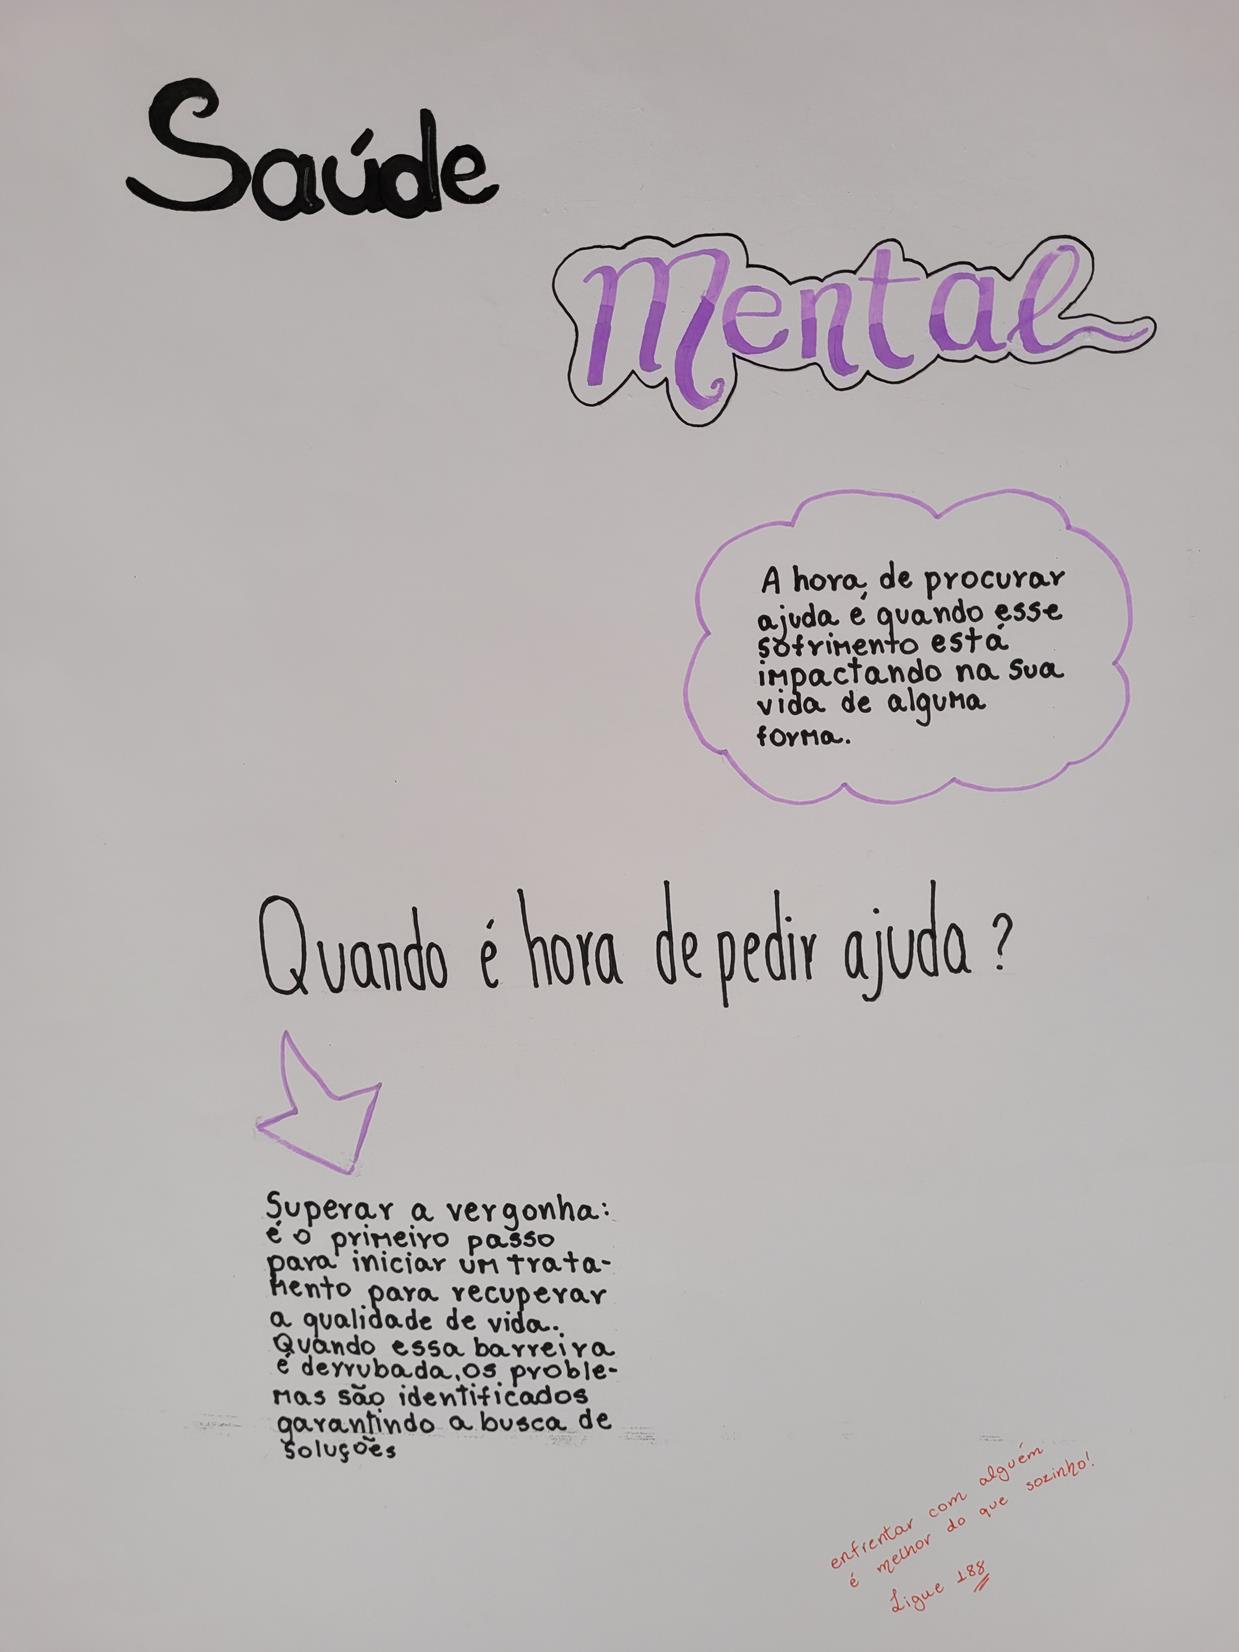 Saúde
Mental
A hora, de procurar
ajuda é quando esse
sofrimento está
impactando na sua
vida de alguma
forma.
Quando é hora de pedir ajuda?
Superar a vergonha:
é o primeiro passo
para iniciar um trata-
mento para recuperar
a qualidade de vida.
Quando essa barreira
é derrubada, os proble-
mas são identificados
garantindo a busca de
soluções
enfrentar com alguém
é melhor do que sozinho!
Ligue 188